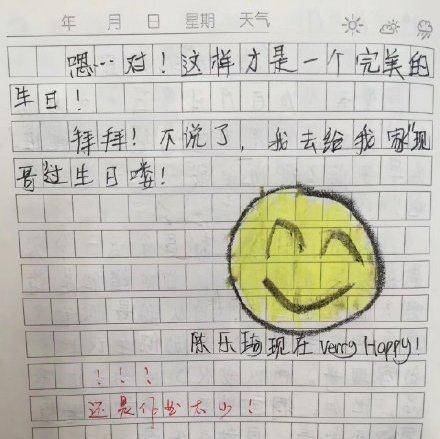 年 月 日 星期 天气
嗯…对！这样才是一个完美的
生日！
拜拜！不说了，我去给我家"现
哥过生日喽！
陈乐 现在 verry Happy！
！！！
还是作业太少！